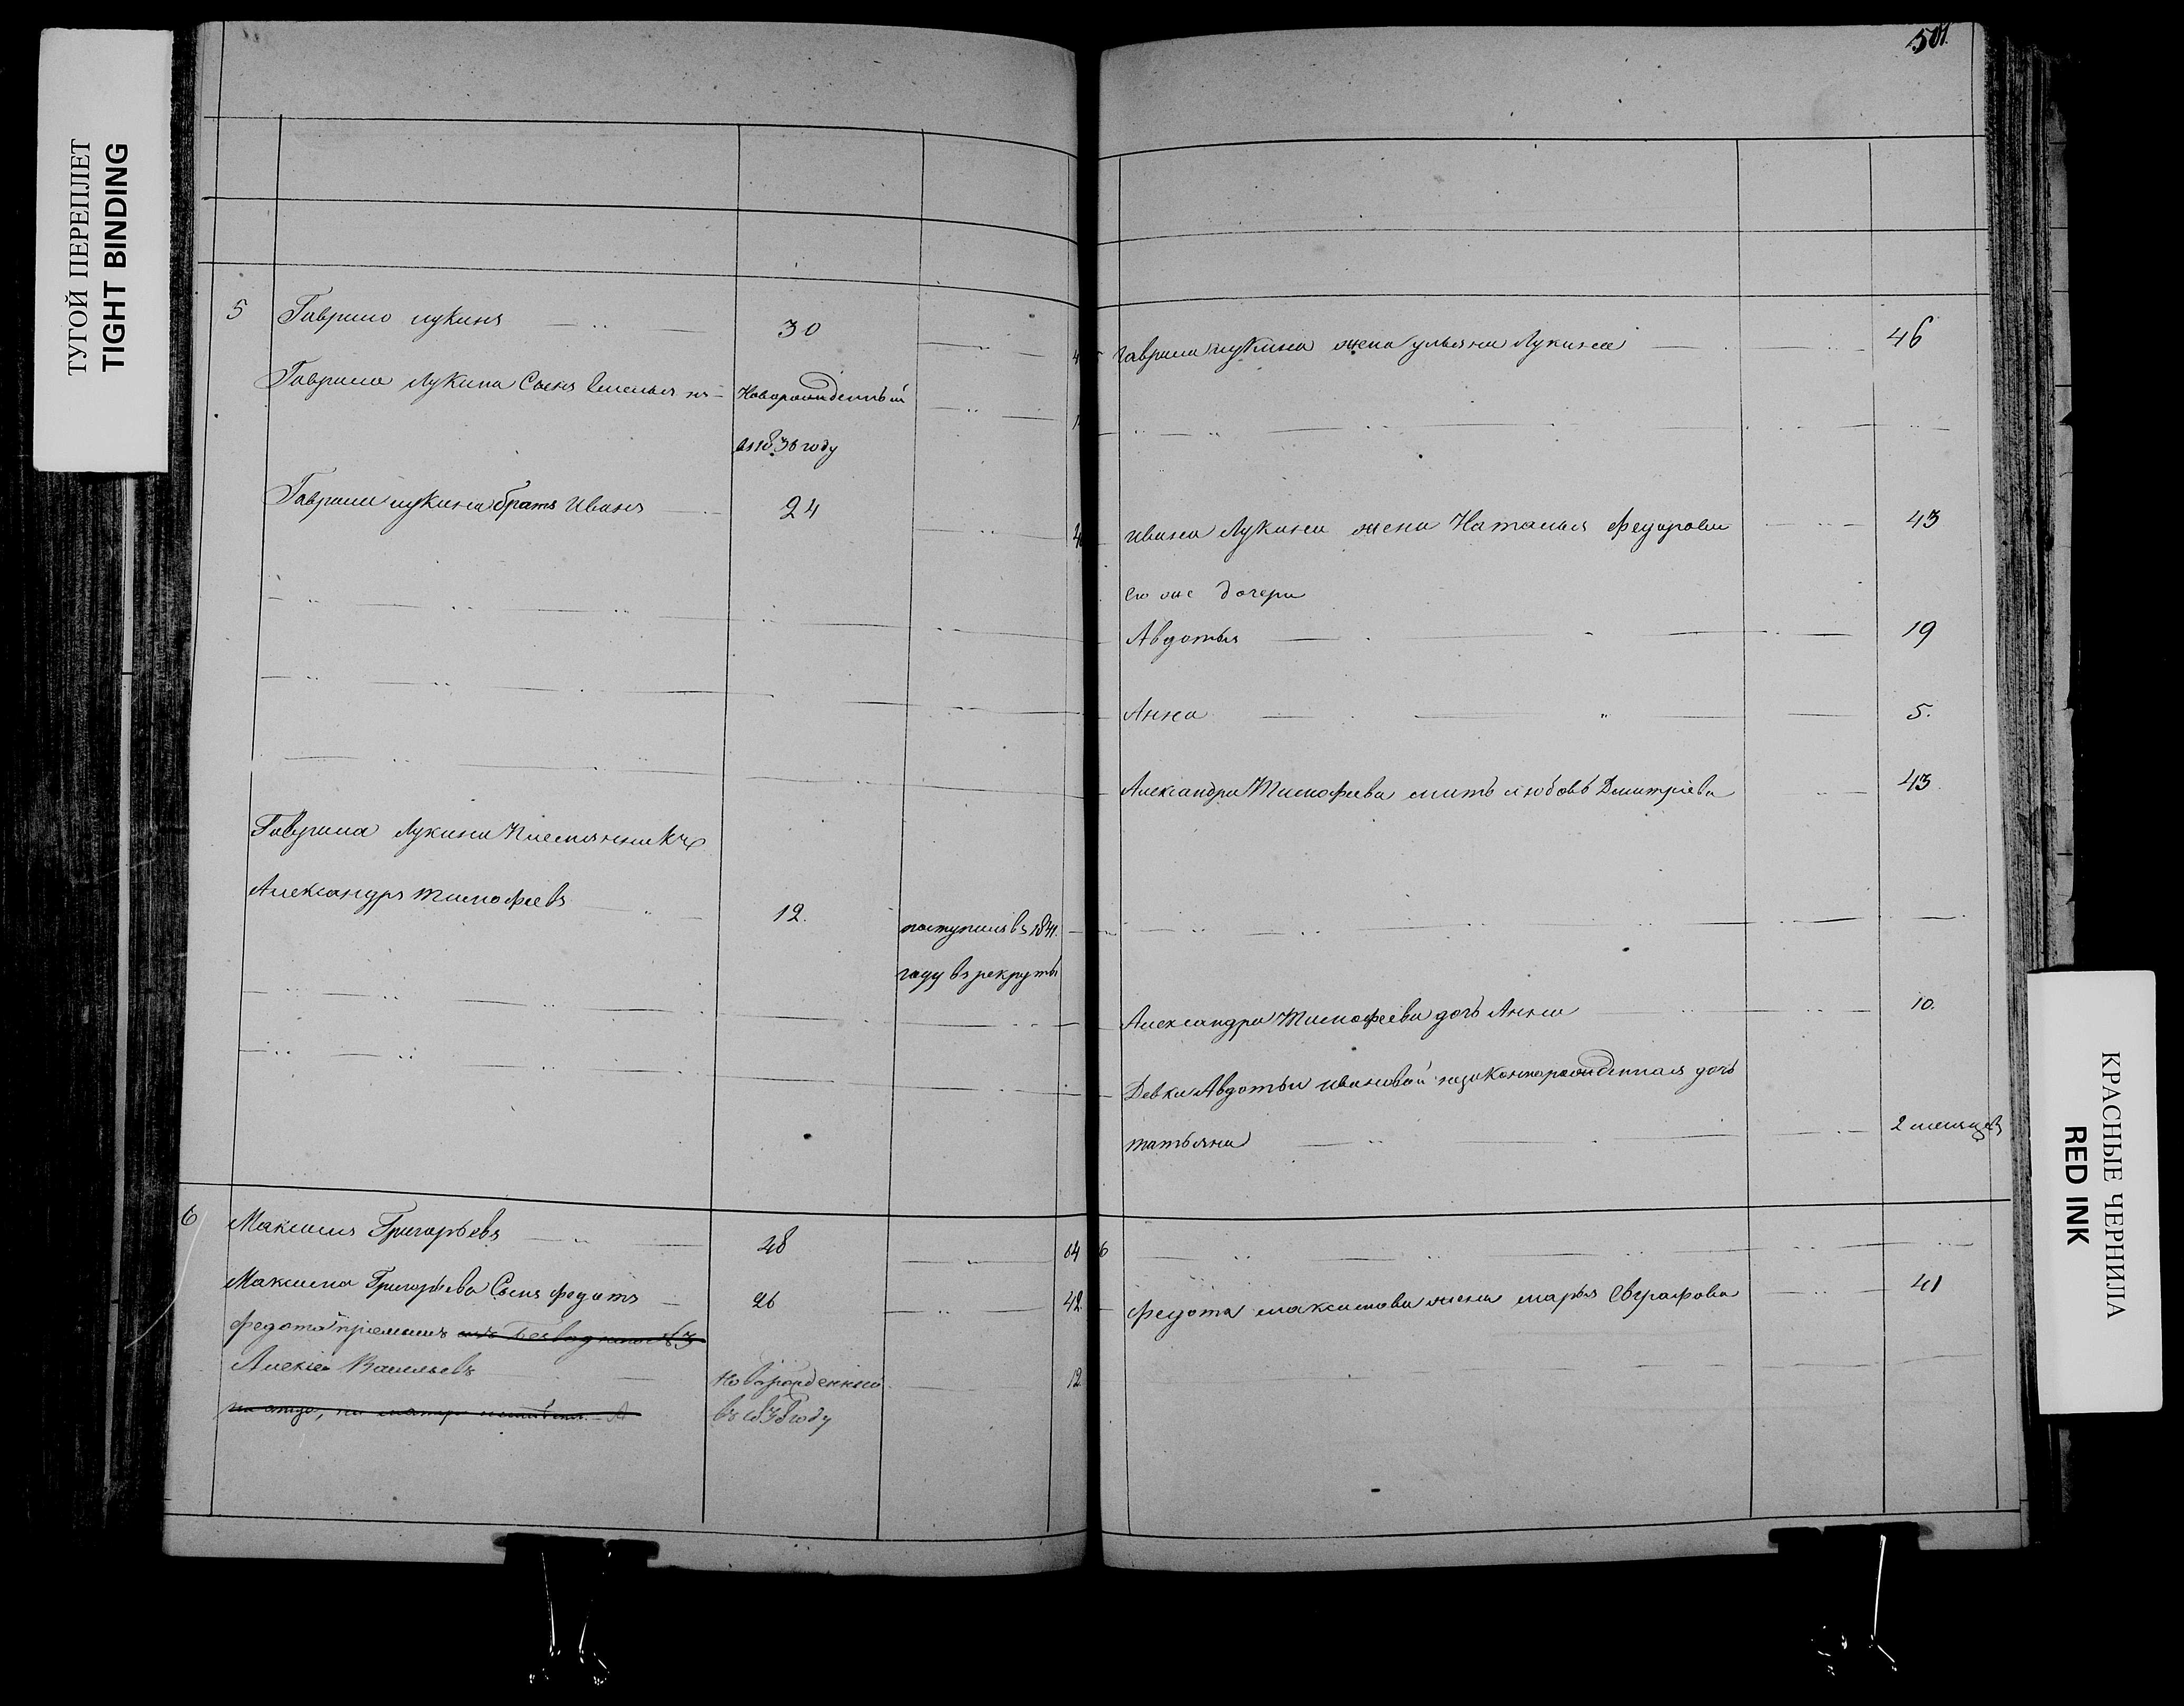 ТУГОЙ ПЕРЕПЛЕТ
TIGHT BINDING
5 Гаврило лукинъ 30
Гаврила Лукина Сынъ Новорожденный
въ 1838 году
Гаврила лукина братъ Иванъ 24
Гаврила Лукина Племянникъ
Александръ тимофеевъ 12. поступилъ въ 1841.
году въ рекруты
6 Максимъ Григорьевъ 28 64
Максима Григорьева Сынъ федотъ 26 42.
федота пріемышъ
Алексей Васильевъ Новорожденный 12
въ 1838 году
501.
5 гаврила лукина жена ульяна Лукина 46
ивана Лукина жена Наталья федорова 43
его же дочери
Авдотья 19
Анна 5.
Александра Тимофеева мать любовь Дмитріева 43
Александра Тимофеева дочь Анна 10.
Девки Авдотьи ивановой незаконнорожденная дочь
татьяна 2 месяцевъ
6
федота максимова жена марья Евграфова 41
КРАСНЫЕ ЧЕРНИЛА
RED INK